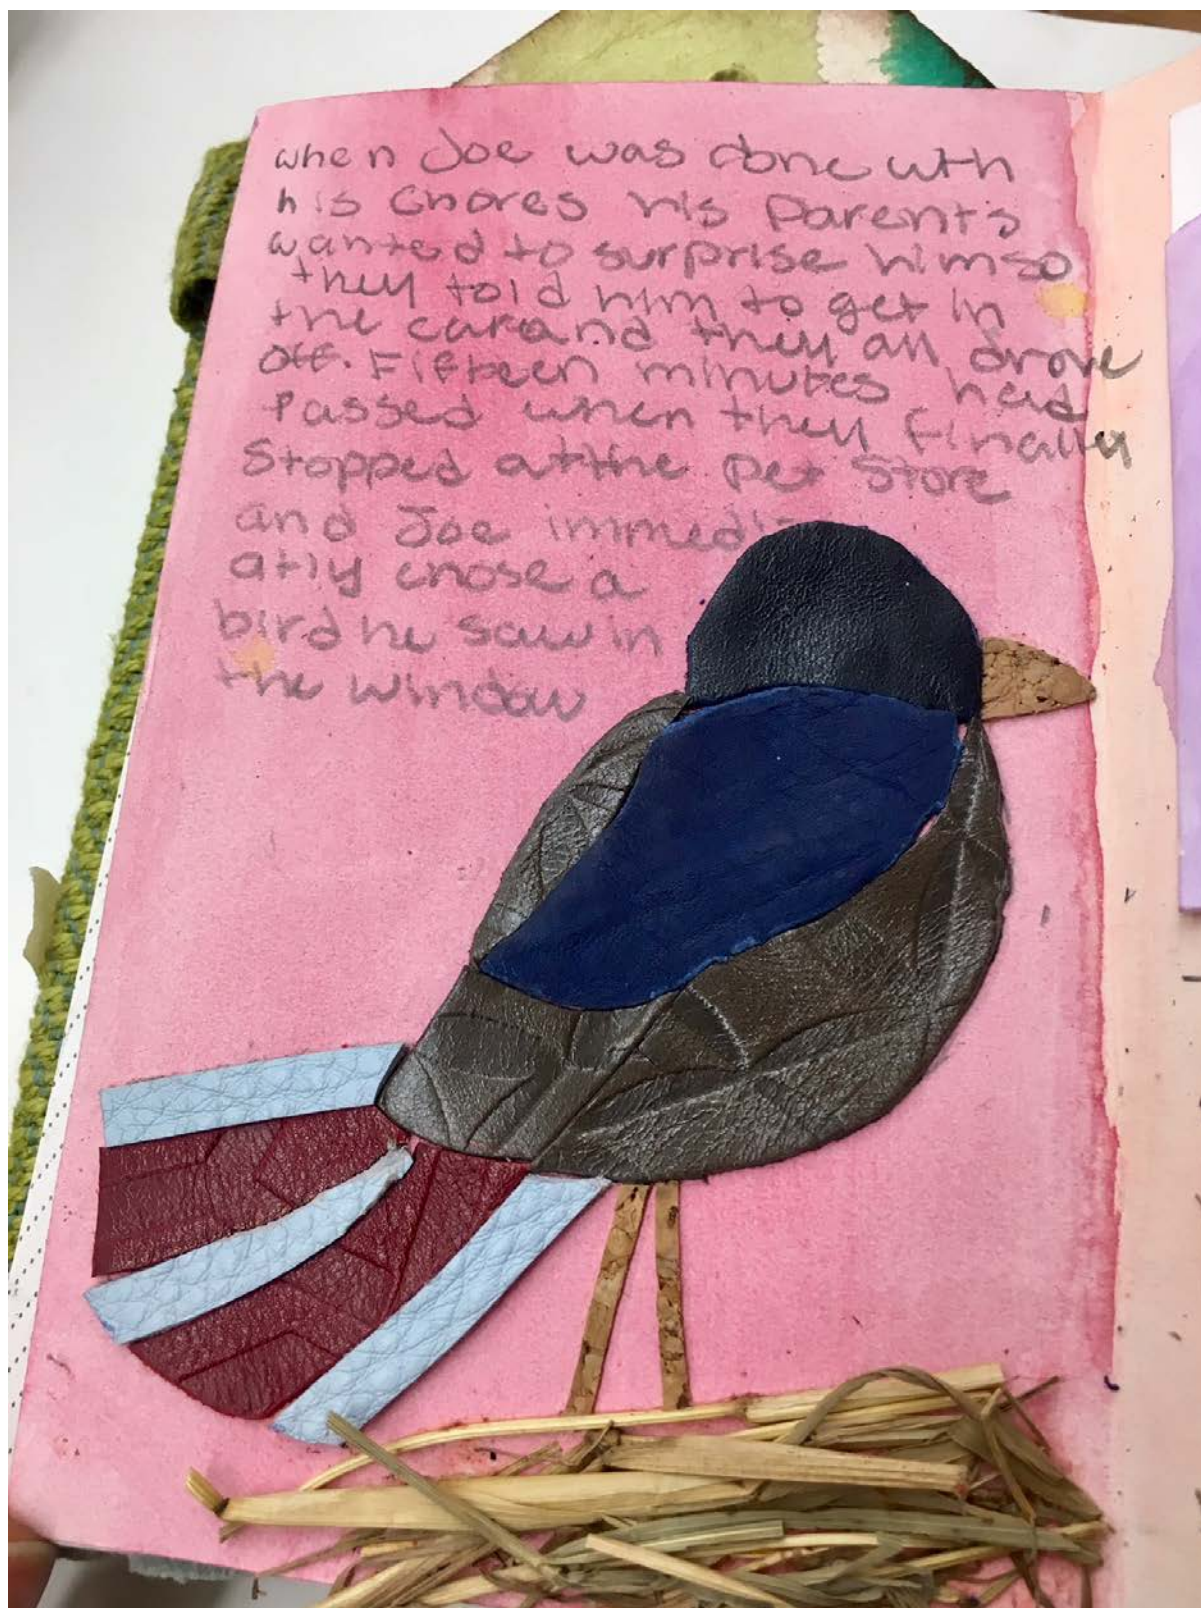 when Joe was done wth
his Chores his Parents
wanted to surprise him so
they told him to get in
the car and they all drove
off. Fifteen minutes had
Passed when they finally
Stopped at the pet Store
and Joe immedi
atly chose a
bird he saw in
the window